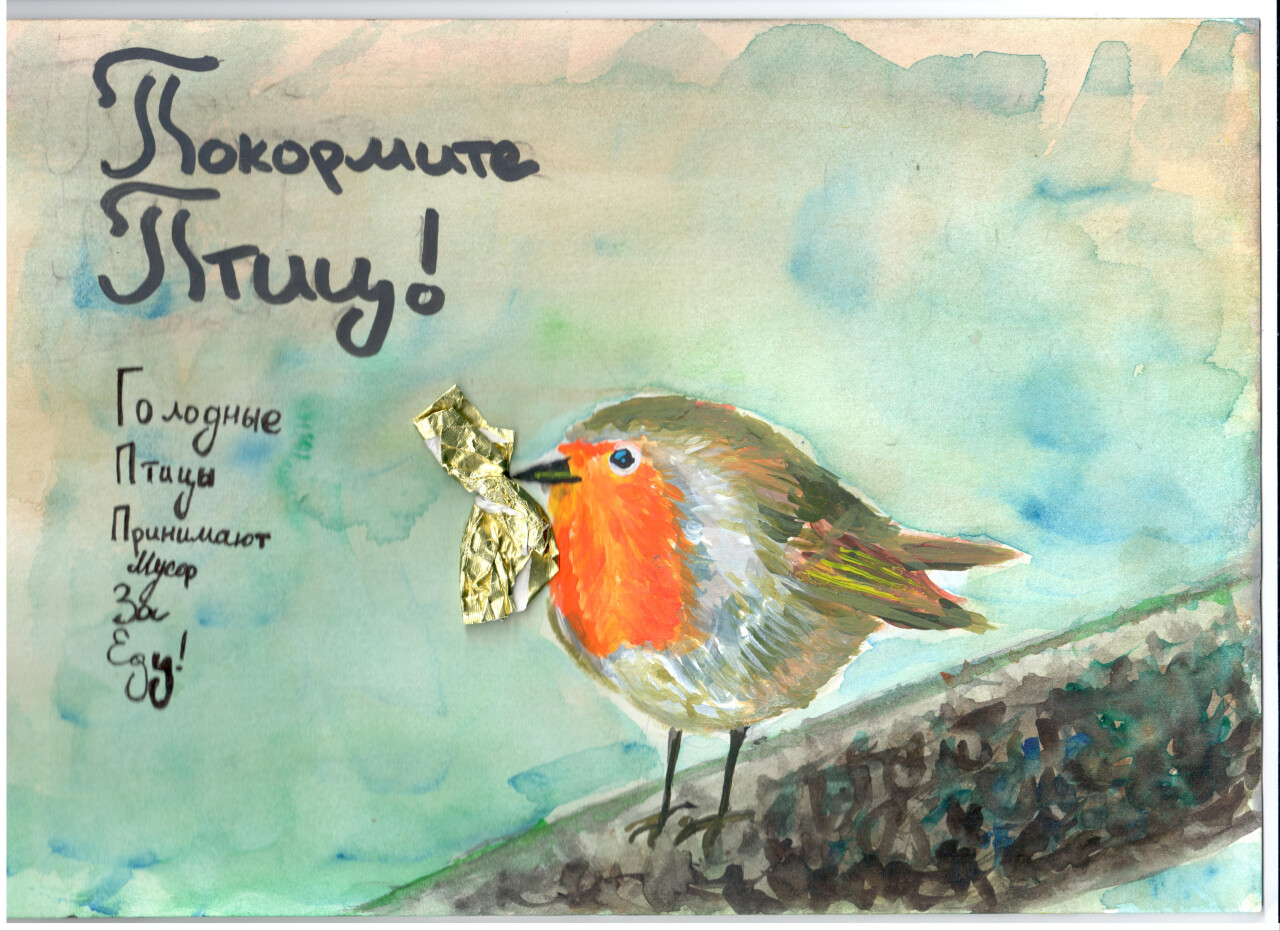 Покормите
Птиц!
Голодные
Птицы
Принимают
Мусор
За
Еду!